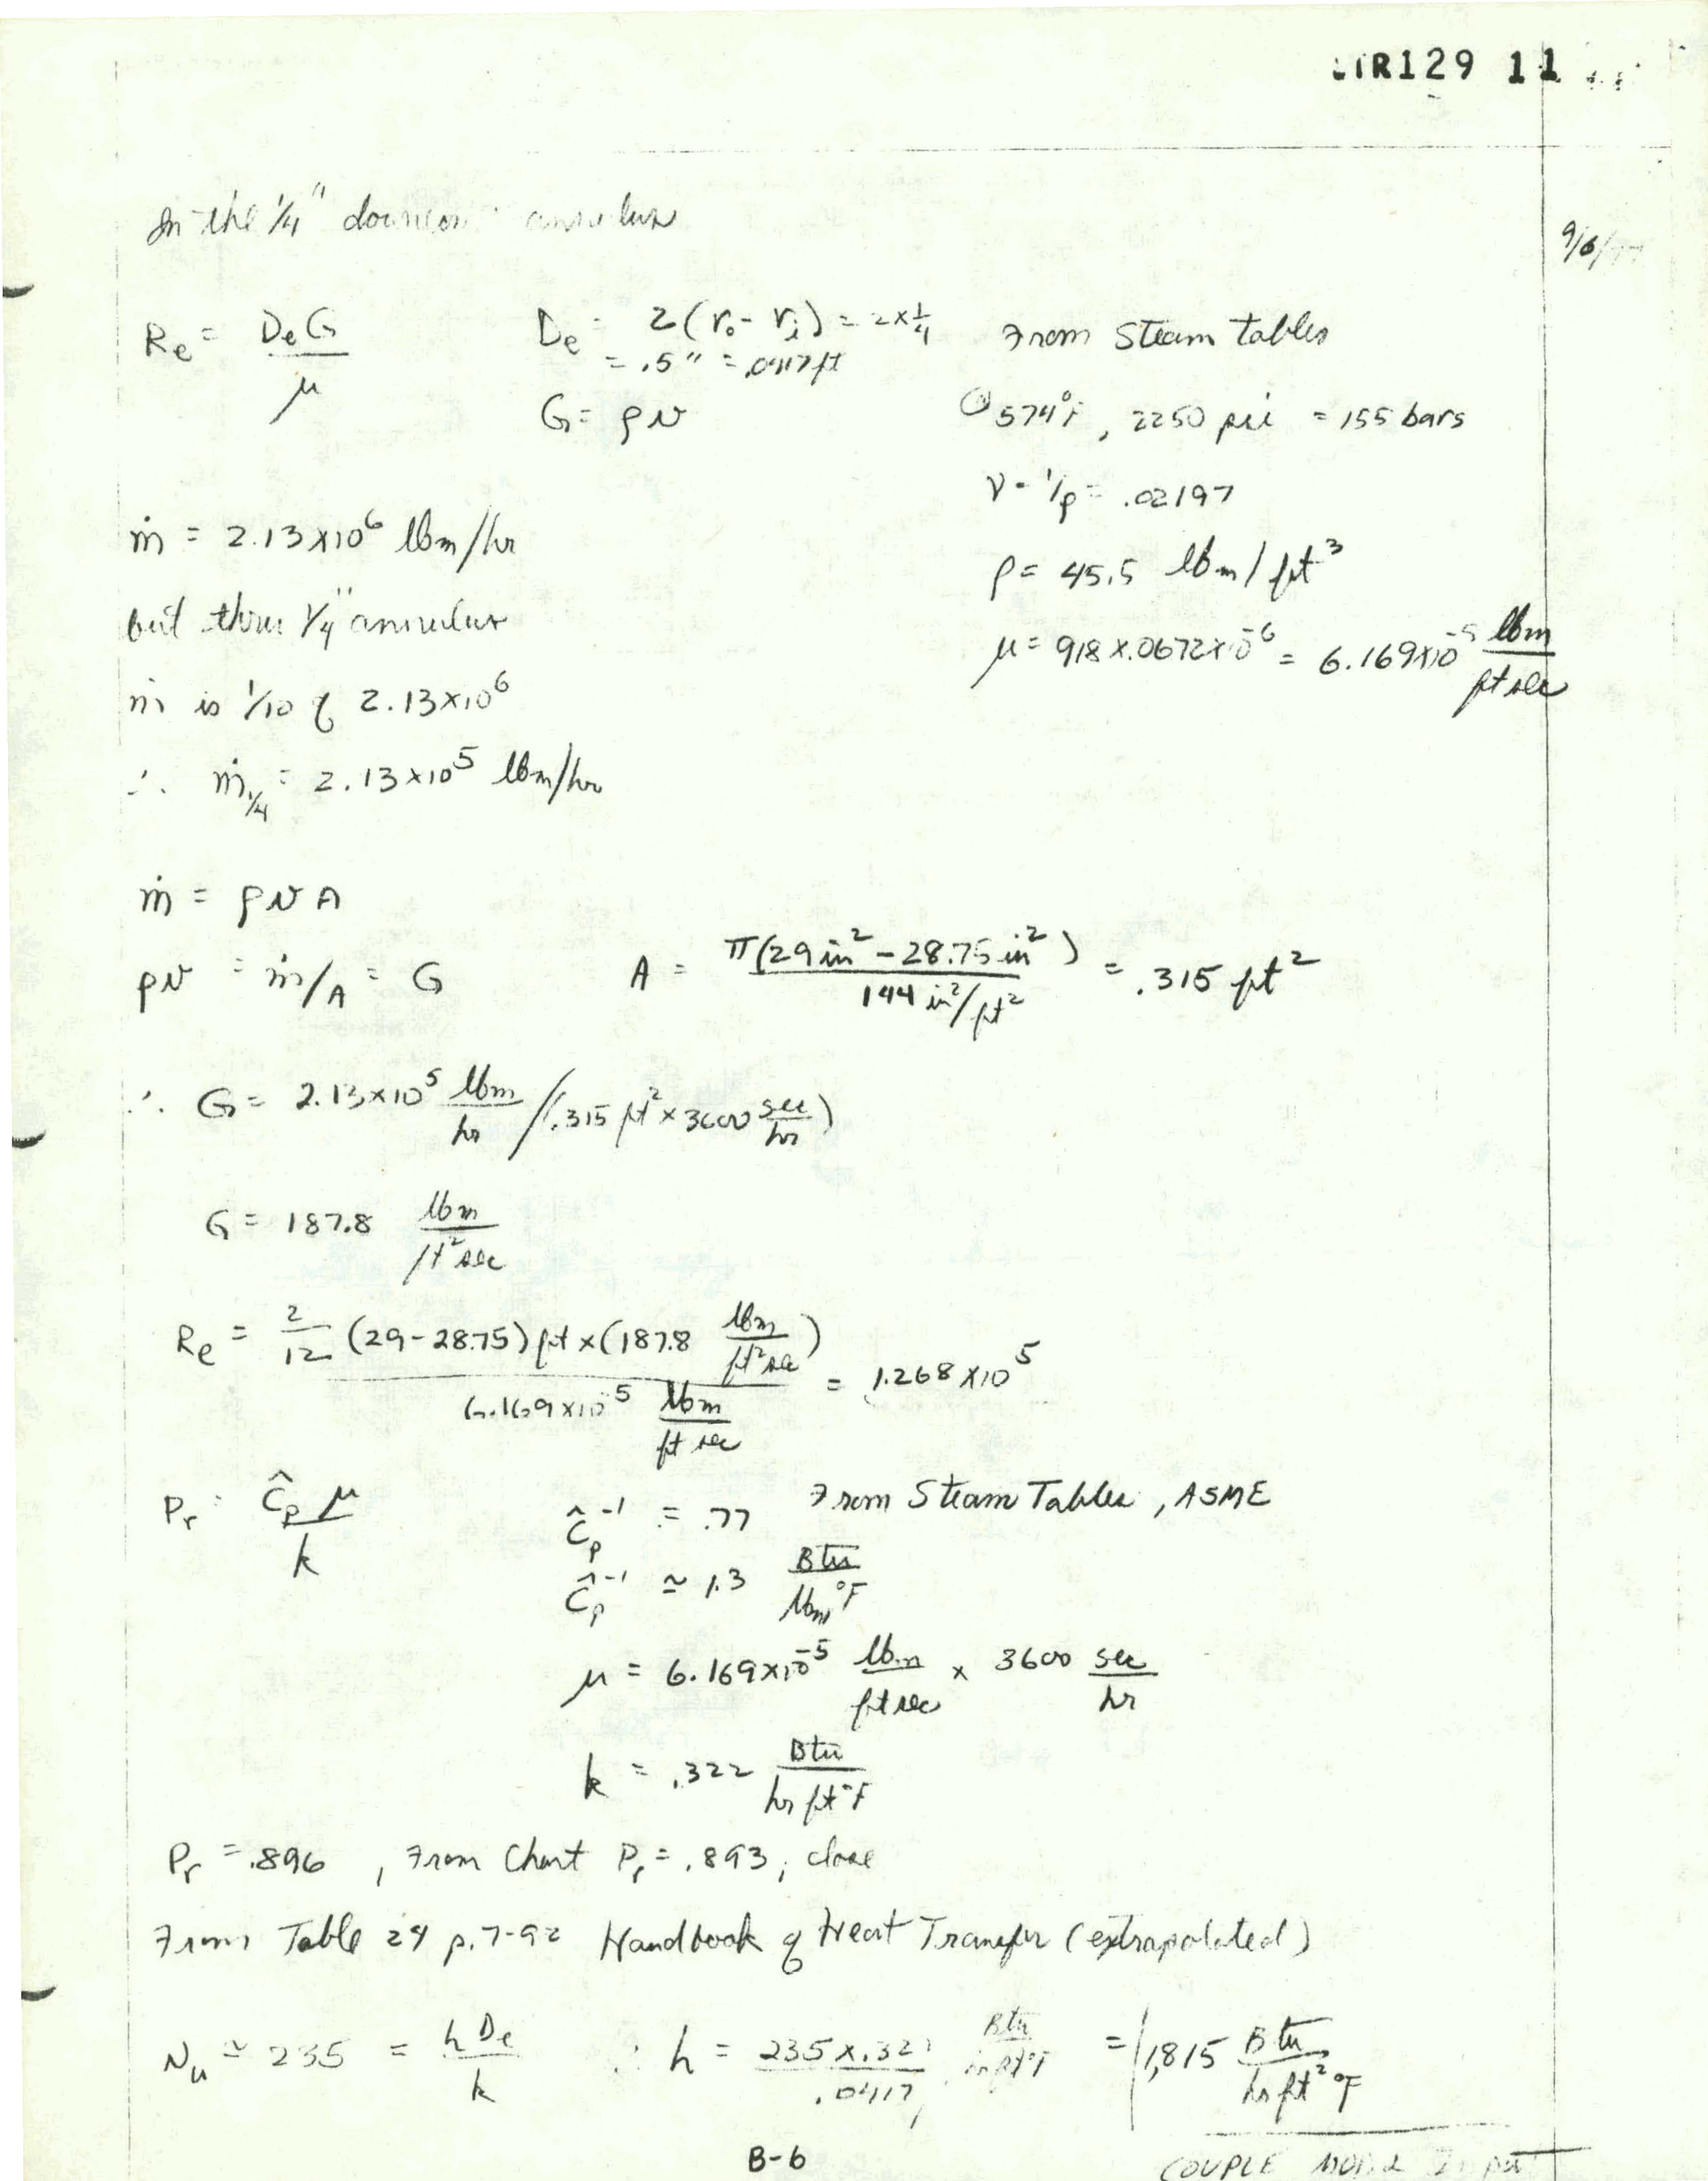 R129 11
In the 1/4" annulus
9/6/
Re = DeG / μ
De = 2(ro - ri) = 2×1/4
= .5" = .0417ft
G = ρv
From Steam tables
@ 574°F, 2250 psi = 155 bars
ν = 1/ρ = .02197
ρ = 45.5 lbm/ft³
μ = 918×.0672×10⁻⁶ = 6.169×10⁻⁵ lbm/ft sec
ṁ = 2.13×10⁶ lbm/hr
but thru 1/4" annulus
ṁ is 1/10 of 2.13×10⁶
∴ ṁ1/4 = 2.13×10⁵ lbm/hr
ṁ = ρvA
ρv = ṁ/A = G
A = π(29in² - 28.75in²) / 144 in²/ft² = .315 ft²
∴ G = 2.13×10⁵ lbm/hr / (.315 ft² × 3600 sec/hr)
G = 187.8 lbm/ft²sec
Re = 2/12 (29-28.75)ft × (187.8 lbm/ft²sec) / 6.169×10⁻⁵ lbm/ft sec = 1.268×10⁵
Pr = Ĉp μ / k
Ĉp⁻¹ = .77 From Steam Tables, ASME
Ĉp⁻¹ ≃ 1.3 Btu/lbm°F
μ = 6.169×10⁻⁵ lbm/ft sec × 3600 sec/hr
k = .322 Btu/hr ft°F
Pr = .896, From Chart Pr = .893; close
From Table 24 p.7-92 Handbook of Heat Transfer (extrapolated)
Nu ≃ 235 = hDe/k
∴ h = 235×.322/.0417 Btu/hr ft²°F = 1,815 Btu/hr ft²°F
B-6
COUPLE MODEL Input